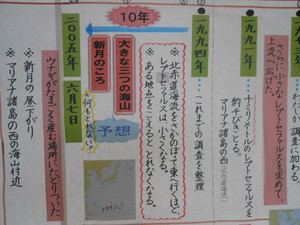 さらに小さなレプトセファルスを求めて、
上流へ広げた。
調査に加わる。
十ミリメートルのレプトセファルスを
約千びきとる。
マリアナ諸島の西
一九九四年
これまでの調査を整理
10年
※北赤道海流をさかのぼって東へ行くほど、
レプトセファルスは、小さくなる。
※ある地点をこえると、とれなくなる。
予想
大きな三つの海山
新月のころ
何もとれない?
二〇〇五年 六月七日
ウナギがたまごを産む場所にたどりついた
※新月の昼下がり
※マリアナ諸島の西の海山付近